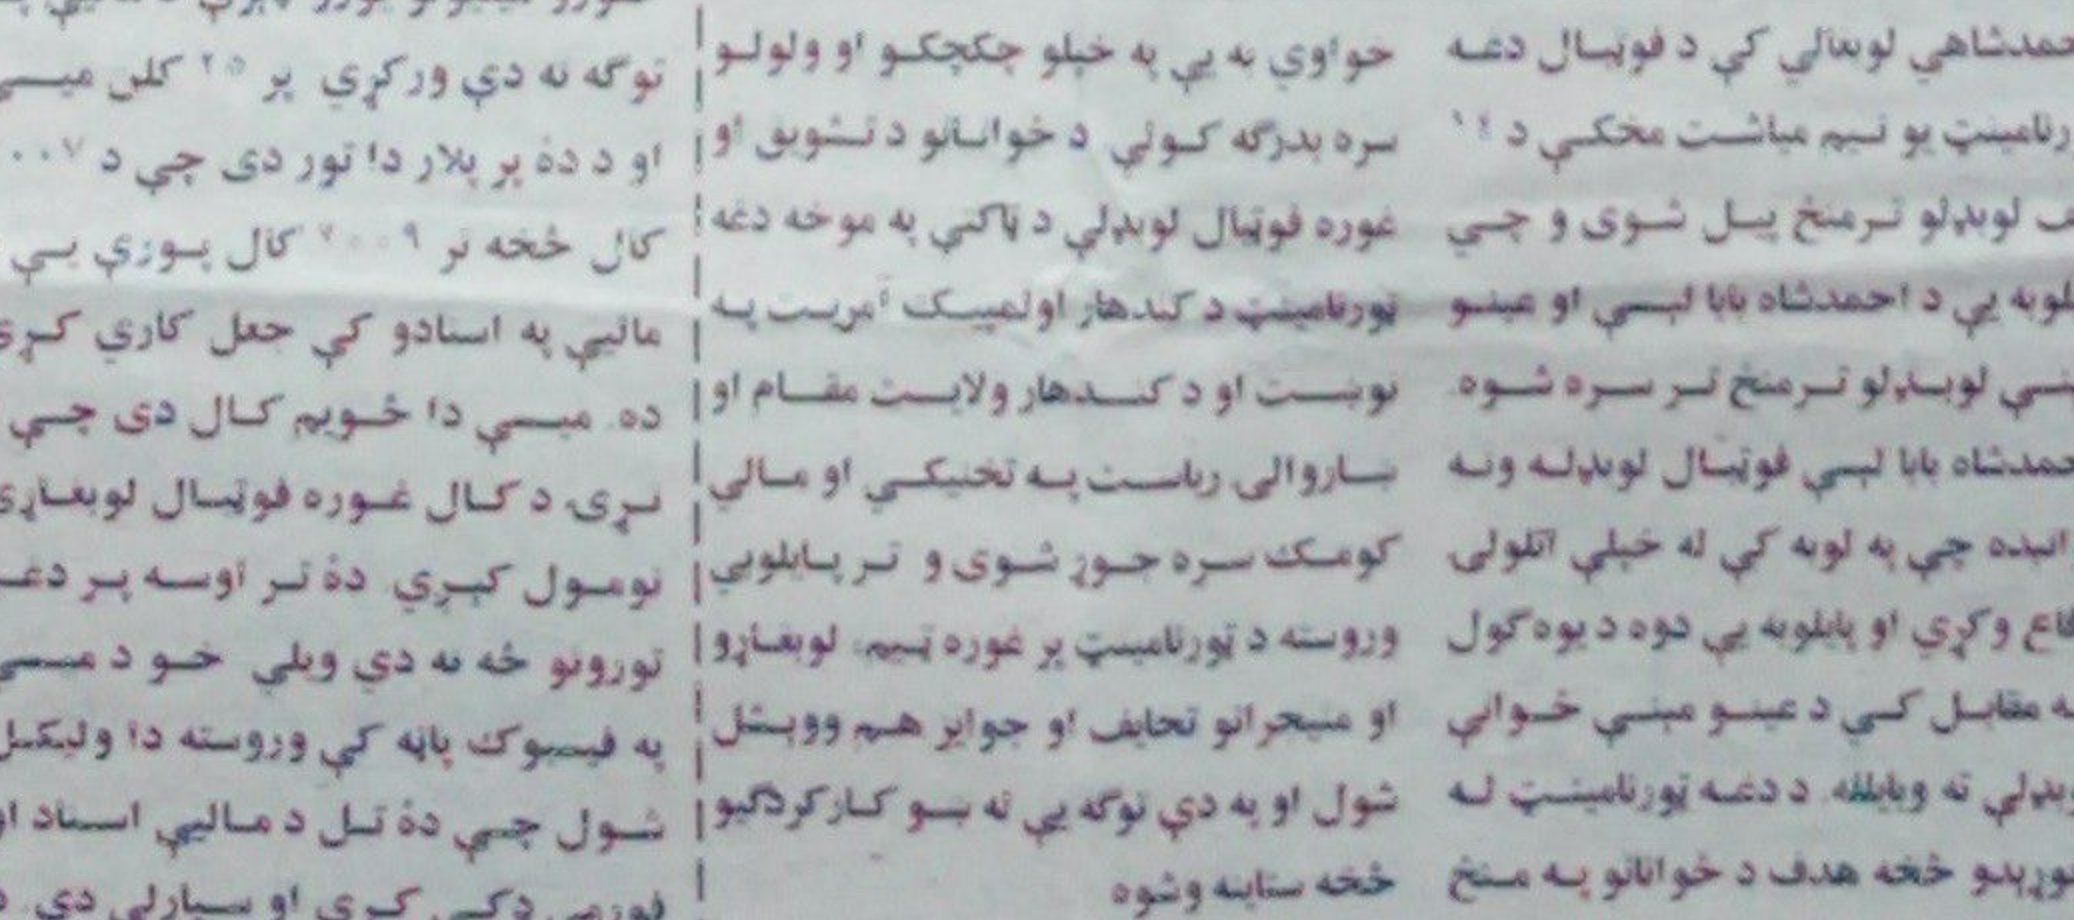 حمدشاهي لوبغالي کې د فوټبال دغه
رنامېنټ يو نيم مياشت مخکې د ١٤
لوبډلو ترمنځ پيل شوی و چې
لوبه يې د احمدشاه بابا لېسې او عينو
مېنې لوبډلو ترمنځ تر سره شوه.
حمدشاه بابا لېسې فوټبال لوبډله ونه
توانېده چې په لوبه کې له خپلې اتلولۍ
دفاع وکړي او پايلوبه يې دوه د يوه ګول
په مقابل کې د عينو مېنې ځوانې
لوبډلې ته وبايلله. د دغه ټورنامېنټ له
جوړېدو څخه هدف د ځوانانو په منځ
خواوې به يې په خپلو چکچکو او ولولو
سره بدرګه کولې. د ځوانانو د تشويق او
غوره فوټبال لوبډلې د ټاکنې په موخه دغه
ټورنامېنټ د کندهار اولمپيک آمريت په
نوښت او د کندهار ولايت مقام او
ښاروالۍ رياست په تخنيکي او مالي
کومک سره جوړ شوی و. تر پايلوبې
وروسته د ټورنامېنټ پر غوره ټيم، لوبغاړو
او منيجرانو تحايف او جوايز هم ووېشل
شول او په دې توګه يې له ښو کارکردګيو
څخه ستاينه وشوه.
توګه نه دې ورکړې. پر ٢٥ کلن مېسي
او د ده پر پلار دا تور دی چې د ٢٠٠٧
کال څخه تر ٢٠٠٩ کال پورې يې
ماليې په اسنادو کې جعل کاري کړې
ده. مېسي دا څوېم کال دی چې د
نړۍ د کال غوره فوټبال لوبغاړی
نومول کېږي. ده تر اوسه پر دغو
تورونو څه نه دي ويلي خو د مېسي
په فېسبوک پاڼه کې وروسته دا وليکل
شول چې ده تل د ماليې اسناد او
فورمې ډکې کړې او سپارلې دي.